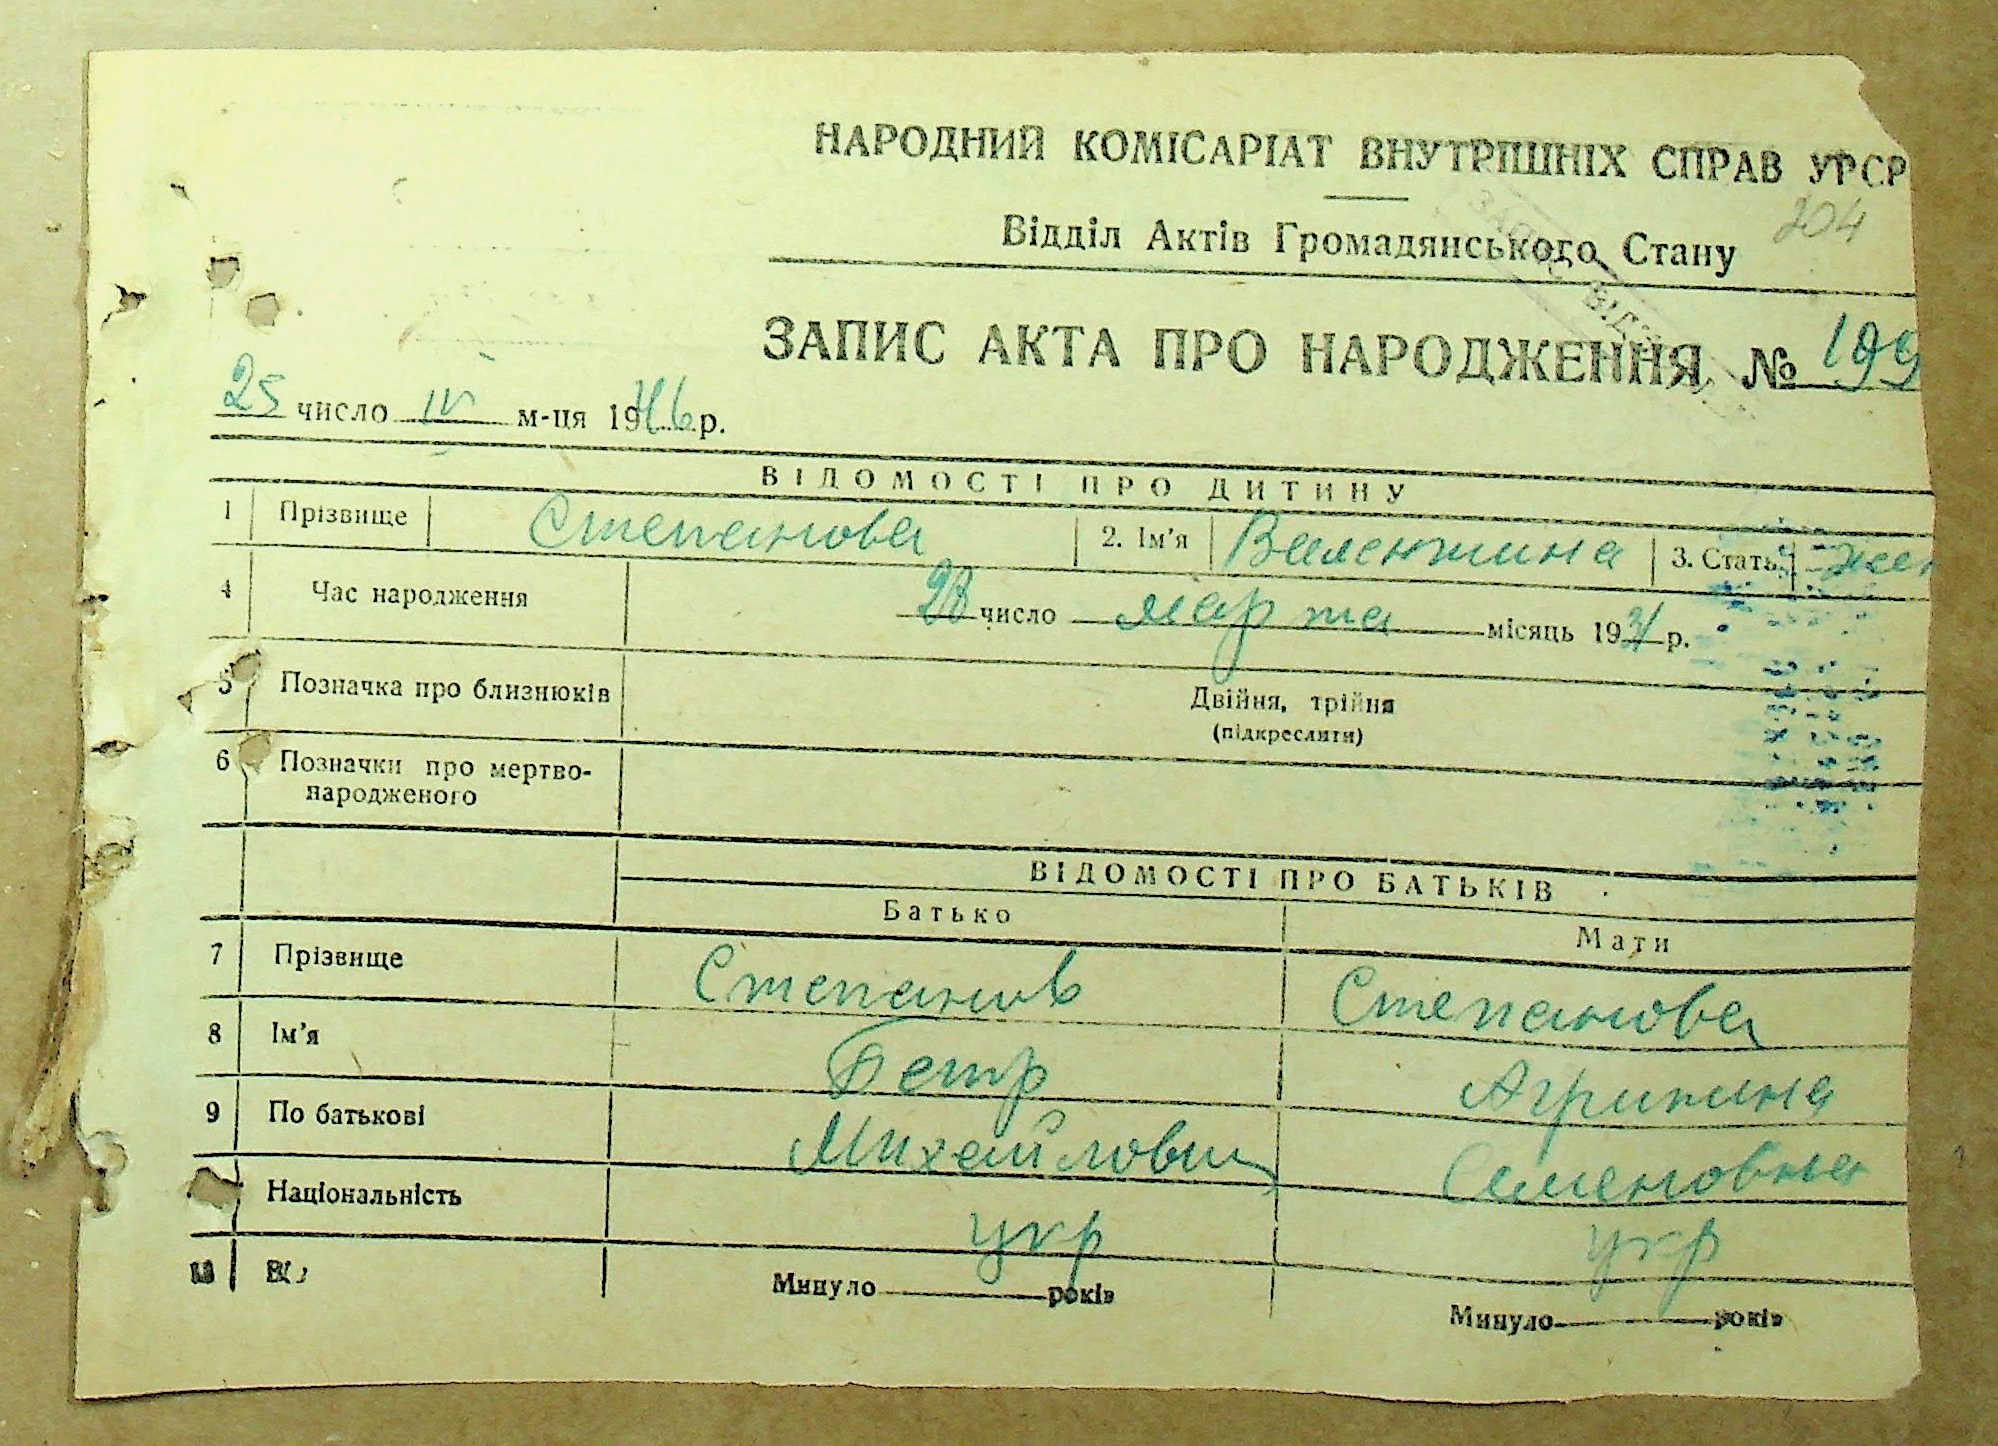 НАРОДНИЙ КОМІСАРІАТ ВНУТРІШНІХ СПРАВ УРСР
204
Відділ Актів Громадянського Стану
ЗАПИС АКТА ПРО НАРОДЖЕННЯ № 199
25 число IV м-ця 1946 р.
ВІДОМОСТІ ПРО ДИТИНУ
1 Прізвище Степанова 2. Ім'я Валентина 3. Стать жен
4 Час народження 28 число марта місяць 1931 р.
5 Позначка про близнюків Двійня, трійня
(підкреслити)
6 Позначки про мертво-
народженого
ВІДОМОСТІ ПРО БАТЬКІВ
Батько Мати
7 Прізвище Степанов Степанова
8 Ім'я Петр Агрипина
9 По батькові Михайлович Семеновна
Національність укр укр
Минуло років Минуло років